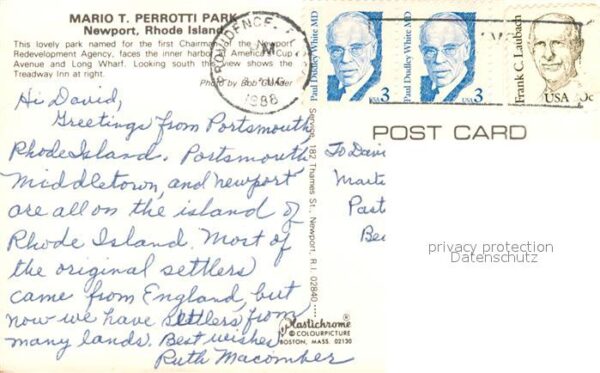 MARIO T. PERROTTI PARK
Newport, Rhode Island
This lovely park named for the first Chairman of the Newport
Redevelopment Agency, faces the inner harbor of America's Cup
Avenue and Long Wharf. Looking south the view shows the
Treadway Inn at right.
Photo by Bob
Hi David,
Greetings from Portsmouth,
Rhode Island. Portsmouth,
Middletown, and Newport
are all on the island of
Rhode Island. Most of
the original settlers
came from England, but
now we have settlers from
many lands. Best wishes
Ruth Macomber
PROVIDENCE,
PM
AUG
1988
Paul Dudley White MD
USA 3
Paul Dudley White MD
USA 3
Frank C. Laubach
USA
POST CARD
To Davi
Marte
Past
Be
Service, 182 Thames St., Newport, R. I. 02840
Plastichrome®
© COLOURPICTURE
BOSTON, MASS. 02130
privacy protection
Datenschutz